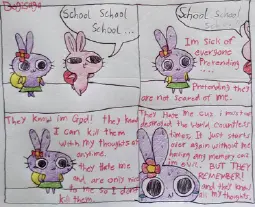 School School
School...
School School
Im Sick of
everyone
Pretending
....
Pretending they
are not scared of me.
They know im God! they know
I can kill them
with my thoughts at
anytime.
they Hate me
and are only nice
to me so I dont
kill them.
They Hate me cuz i must've
destroyed the world countless
times. It just starts
over again without me
having any memory cuz
im evil. BUT THEY
REMEMBER!
and they know
all my thoughts.